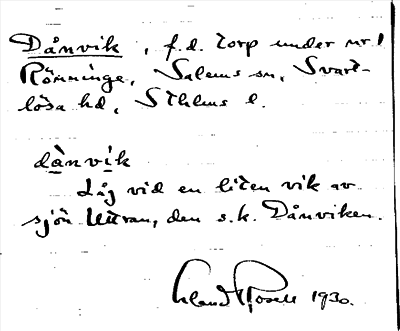 Dånvik, f.d. torp under nr 1
Rönninge, Salems sn, Svart-
lösa hd, Sthlms l.
dånvik
Låg vid en liten vik av
sjön Uttran, den s.k. Dånviken.
Rosell 1930.